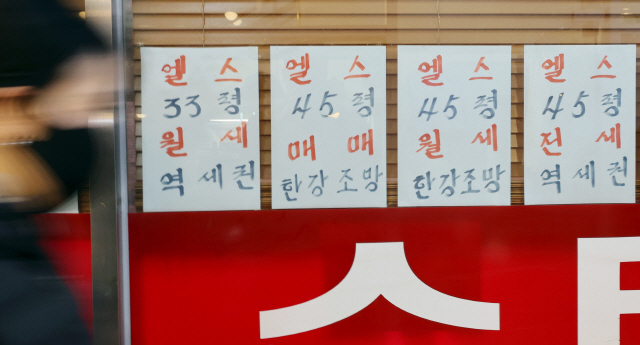 엘스
33평
월세
역세권
엘스
45평
매매
한강조망
엘스
45평
월세
한강조망
엘스
45평
전세
역세권
스